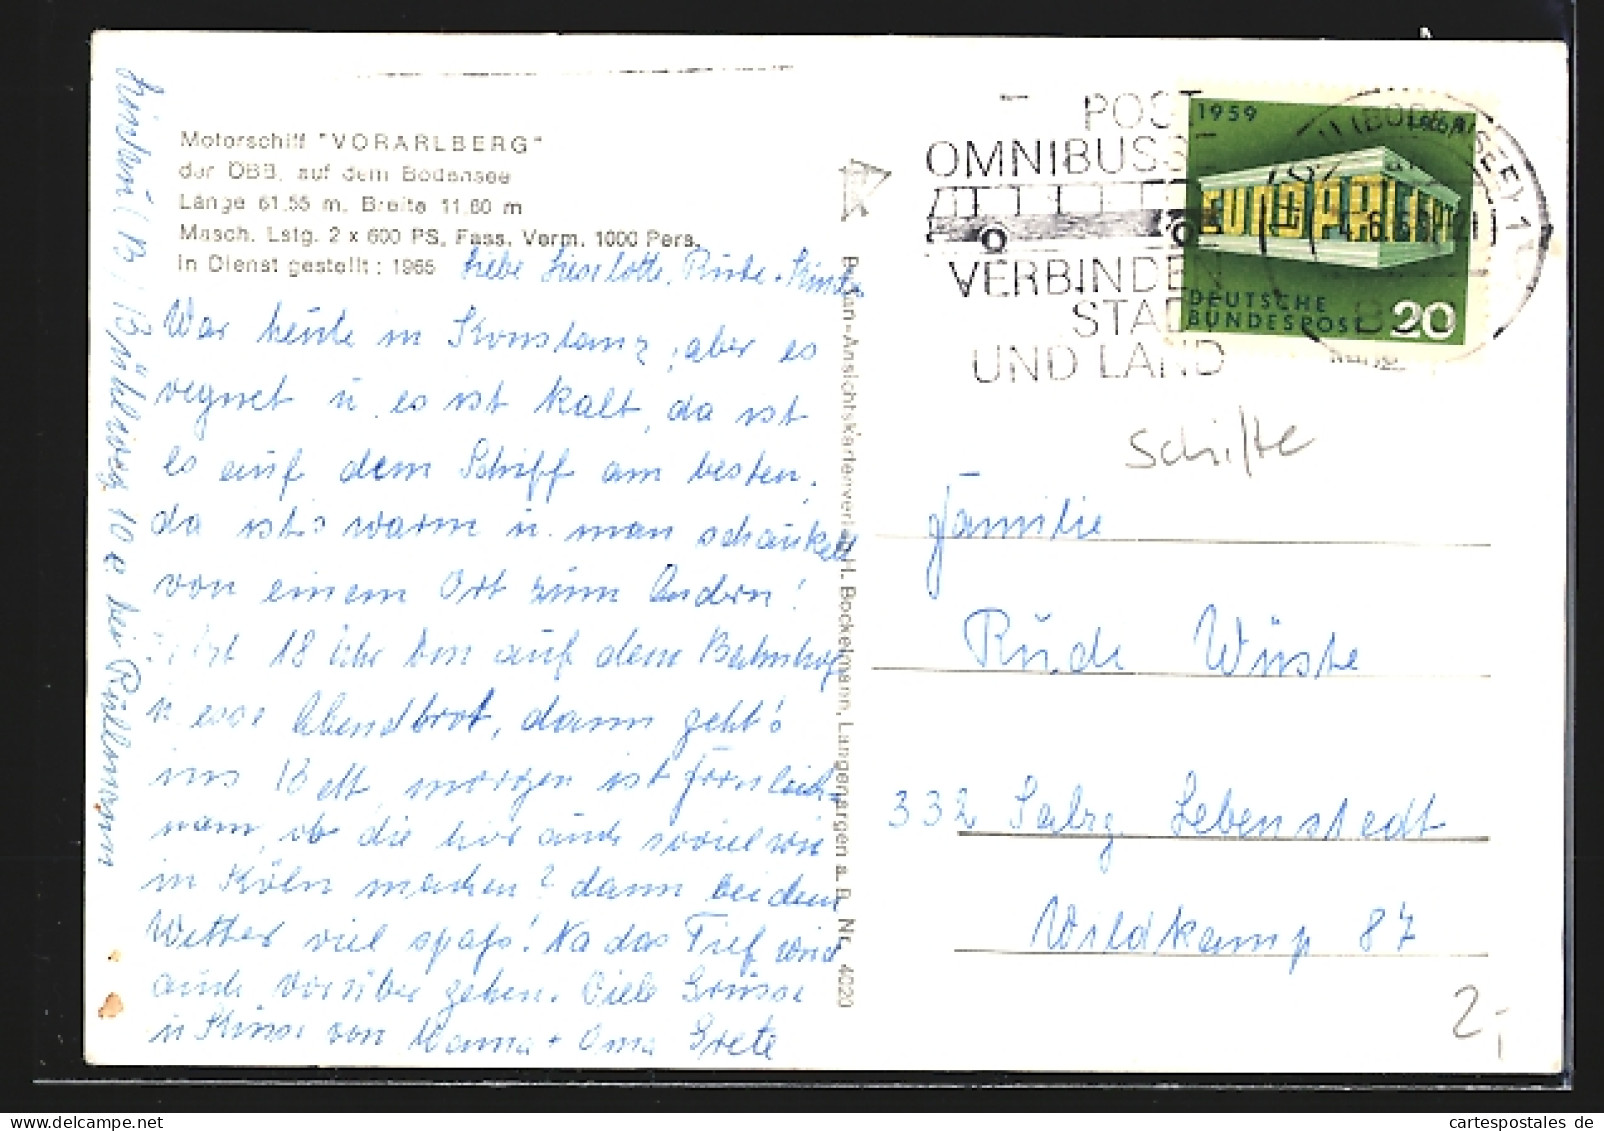 Motorschiff "VORARLBERG"
der ÖBB. auf dem Bodensee
Länge 61.55 m. Breite 11.60 m
Masch. Lstg. 2 x 600 PS, Fass. Verm. 1000 Pers.
in Dienst gestellt: 1965
Liebe Lieselotte, Rude + Kinder
War heute in Konstanz, aber es
regnet u. es ist kalt, da ist
es auf dem Schiff am besten,
da ist's warm u. man schaukelt
von einem Ort zum Andern!
Jetzt 18 Uhr bin auf dem Bahnhof
u esse Abendbrot, dann geht's
ins Bett, morgen ist Fronleich-
nam, ob die hier auch soviel wie
in Köln machen? dann bei dem
Wetter viel spaß! Na das Tief wird
auch vorüber gehen. Viele Grüsse
u Küsse von Mama + Oma Grete
10 e bei
Buhlweg
Braun-Ansichtskartenverlag H. Bockelmann, Langenargen a. B. Nr. 4020
POST
OMNIBUSSE
VERBINDEN
STADT
UND LAND
(BODENSEE) 1
1959
EUROPA CEPT
DEUTSCHE
BUNDESPOST
20
Schiffe
Familie
Rude Wüste
332 Salzg. Lebenstedt
Wildkamp 87
2,-
www.cartespostales.de